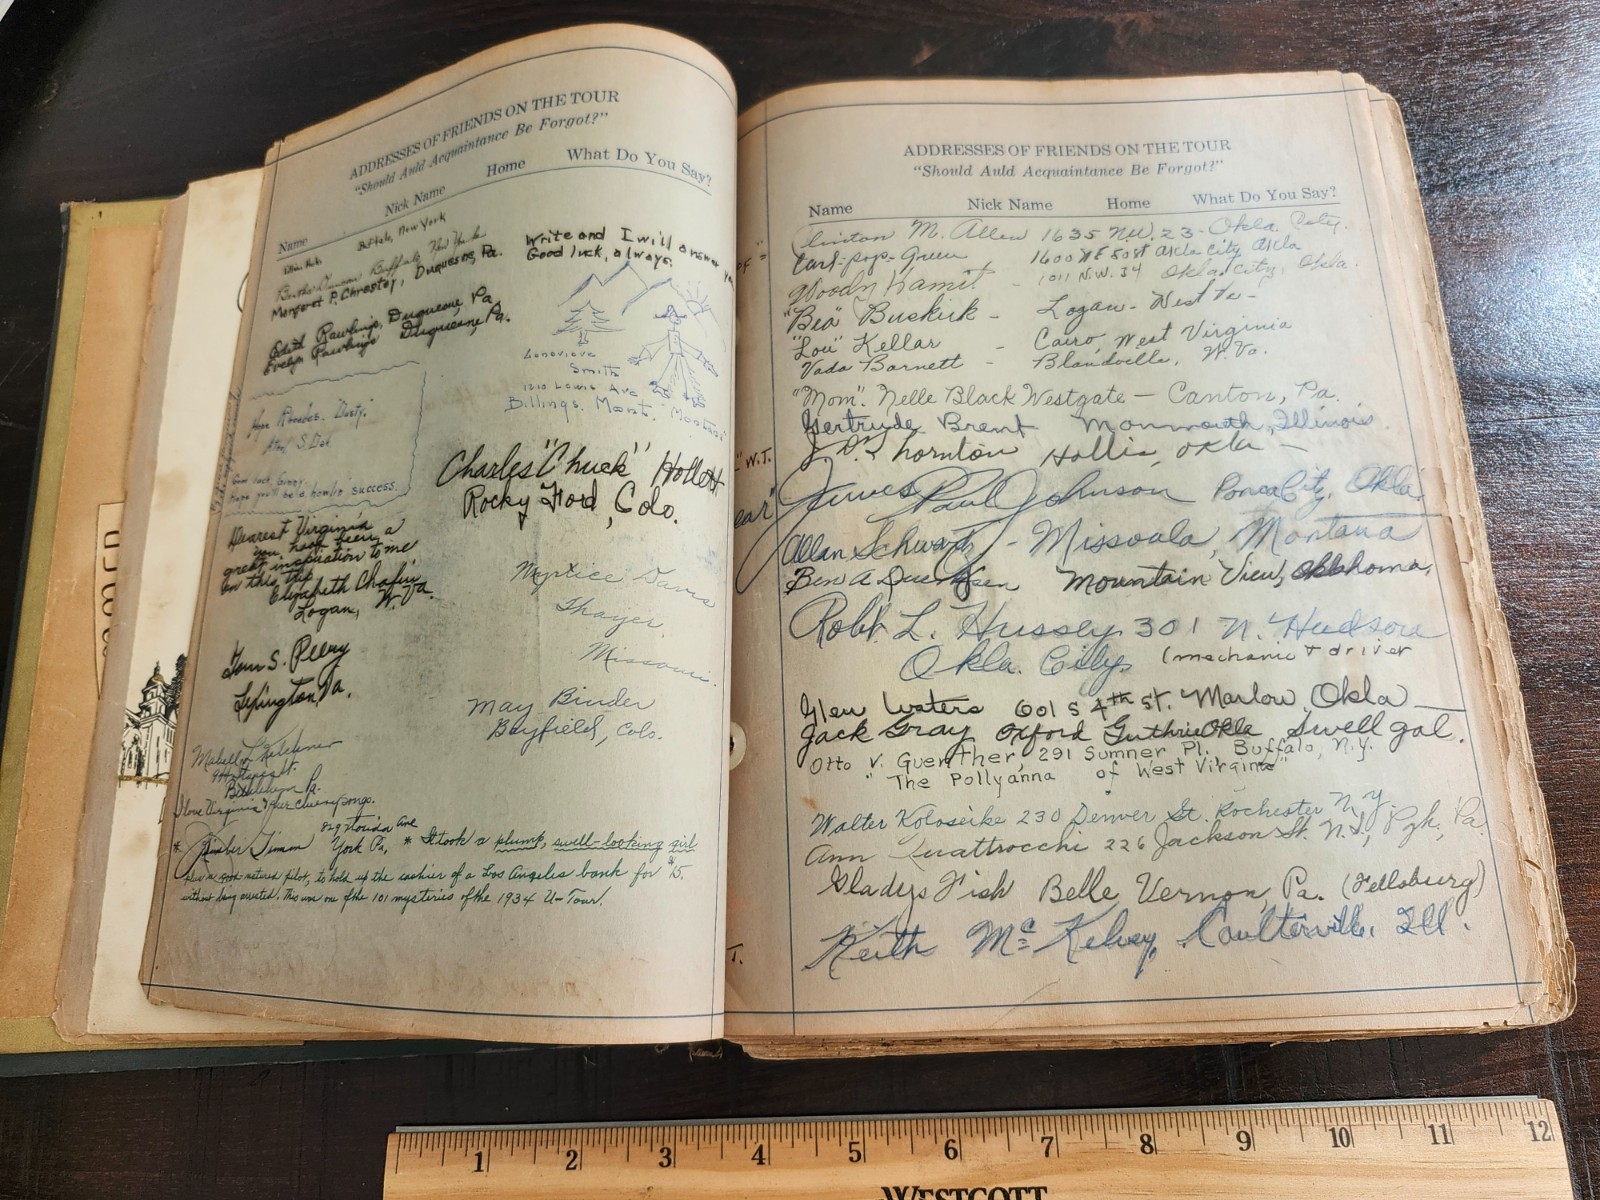 ADDRESSES OF FRIENDS ON THE TOUR
"Should Auld Acquaintance Be Forgot?"
Name Nick Name Home What Do You Say?
Buffalo, New York
Buffalo New York
Margaret P. Chrostey, Duquesne, Pa.
Edith Rawlings, Duquesne, Pa.
Evelyn Rawlings Duquesne, Pa.
Write and I will answer you
Good luck, always.
Genevieve
Smith
1210 Lewis Ave
Billings, Mont. "Montana"
Hope Rhoades. "Dusty"
Good luck, Ginny.
Hope you'll be a howlin' success.
Charles "Chuck" Hollett
Rocky Ford, Colo.
Dearest Virginia
you have been a
great inspiration to me
on this trip
Elizabeth Chafin
Logan, W. Va.
Myrtice Davis
Thayer,
Missouri.
Tom S. Peery
Lexington, Va.
May Binder
Bayfield, Colo.
Mabell L. Kelchner
I love Virginia & her cheery songs.
829 Florida Ave
York Pa, * It took a plump, swell-looking girl
also a good natured pilot, to hold up the cashier of a Los Angeles bank for $15.
without being arrested. This was one of the 101 mysteries of the 1934 U-Tour.
ADDRESSES OF FRIENDS ON THE TOUR
"Should Auld Acquaintance Be Forgot?"
Name Nick Name Home What Do You Say?
Clinton M. Allen 1635 N.W. 23 - Okla. City.
Carl-pop-Green 1600 NE 50 st Okla city Okla
Woody 1011 N.W. 34 Okla. city, Okla.
"Bea" Buskirk - Logan - West Va -
"Lou" Kellar - Cairo, West Virginia
Vada Barnett - Blandville, W. Va.
"Mom". Nelle Black Westgate - Canton, Pa.
Gertrude Brent Monmouth, Illinois.
J. D. Thornton Hollis, Okla -
"W.T.
James Paul Johnson Ponca City, Okla.
ear"
Allan Schwartz - Missoula, Montana
Ben A Mountain View, Oklahoma,
Robt L. Hussey 301 N. Hudson
Okla. City. (mechanic & driver
Glen Waters 601 S 4th st. Marlow, Okla
Jack Gray Oxford Guthrie Okla Swell gal.
Otto V. Guenther, 291 Sumner Pl. Buffalo, N.Y.
"The Pollyanna of West Virginia"
Walter Koloseike 230 Denver St. Rochester N.Y.
Ann Quattrocchi 226 Jackson St. N.S., Pgh, Pa.
Gladys Fish Belle Vernon, Pa. (Fellsburg)
Keith McKelvey, Coulterville, Ill.
T.
1 2 3 4 5 6 7 8 9 10 11 12
WESTCOTT